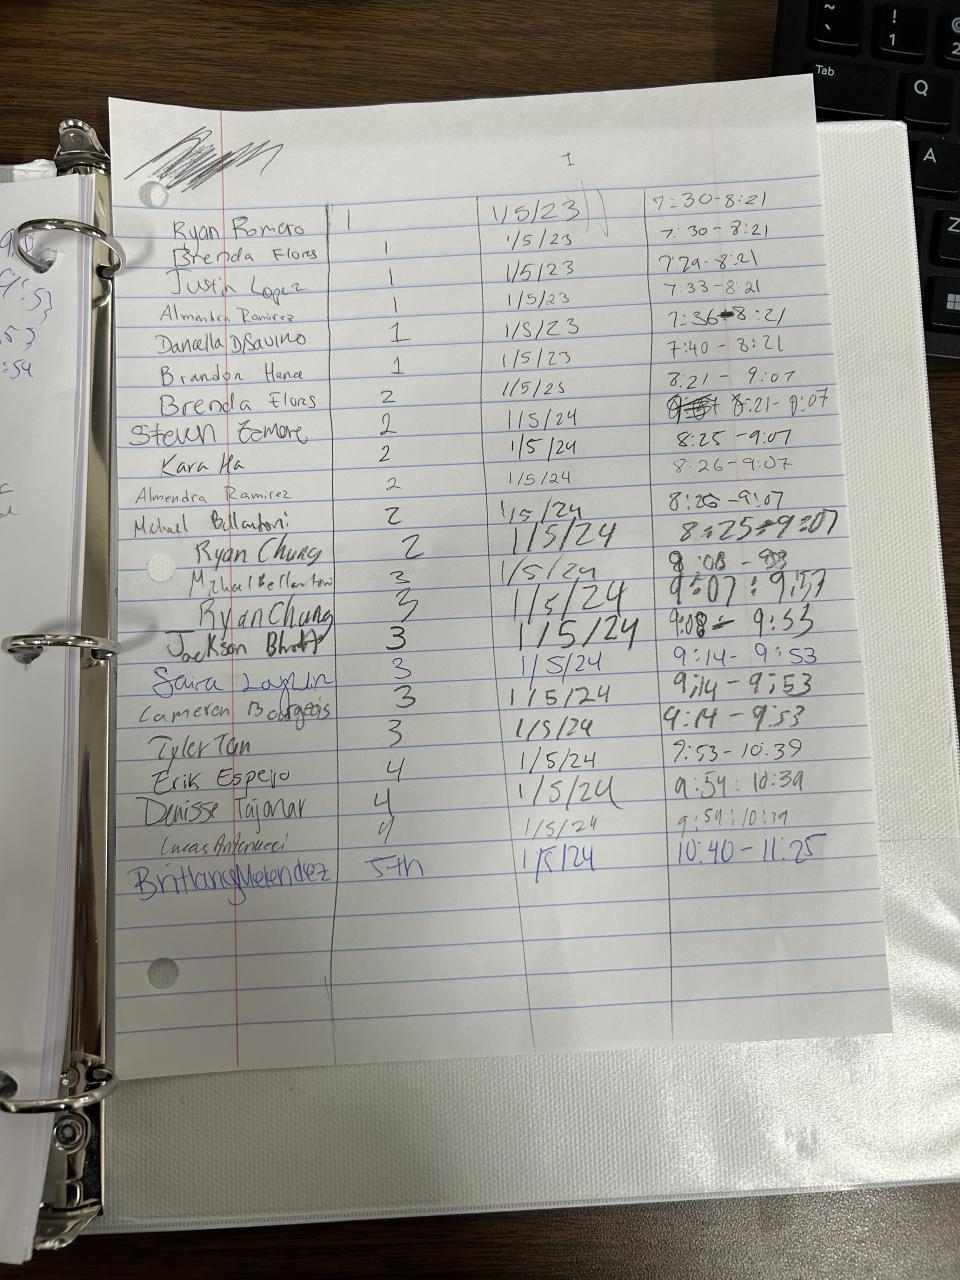 I
Ryan Romero 1 1/5/23 7:30-8:21
Brenda Flores 1 1/5/23 7:30-8:21
Justin Lopez 1 1/5/23 7:29-8:21
Almendra Ramirez 1 1/5/23 7:33-8:21
Daniella DSavino 1 1/5/23 7:36-8:21
Brandon Hance 1 1/5/23 7:40-8:21
Brenda Flores 2 1/5/23 8:21-9:07
Steven 2 1/5/24 8:21-9:07
Kara Ha 2 1/5/24 8:25-9:07
Almendra Ramirez 2 1/5/24 8:26-9:07
Michael Bellantoni 2 1/5/24 8:26-9:07
Ryan Chung 2 1/5/24 8:25-9:07
Michael Bellantoni 3 1/5/24
Ryan Chung 3 1/5/24 9:07:9:53
Jackson 3 1/5/24 9:08-9:53
Saira 3 1/5/24 9:14-9:53
Cameron Bourgeois 3 1/5/24 9:14-9:53
Tyler Tan 3 1/5/24 9:14-9:53
Erik Espejo 4 1/5/24 9:53-10:39
Denisse Tajonar 4 1/5/24 9:54:10:39
Lucas Antonucci 4 1/5/24 9:54:10:39
Brittany Melendez 5th 1/5/24 10:40-11:25
:53
:54
Tab
Q
A
Z
~
`
!
1
2